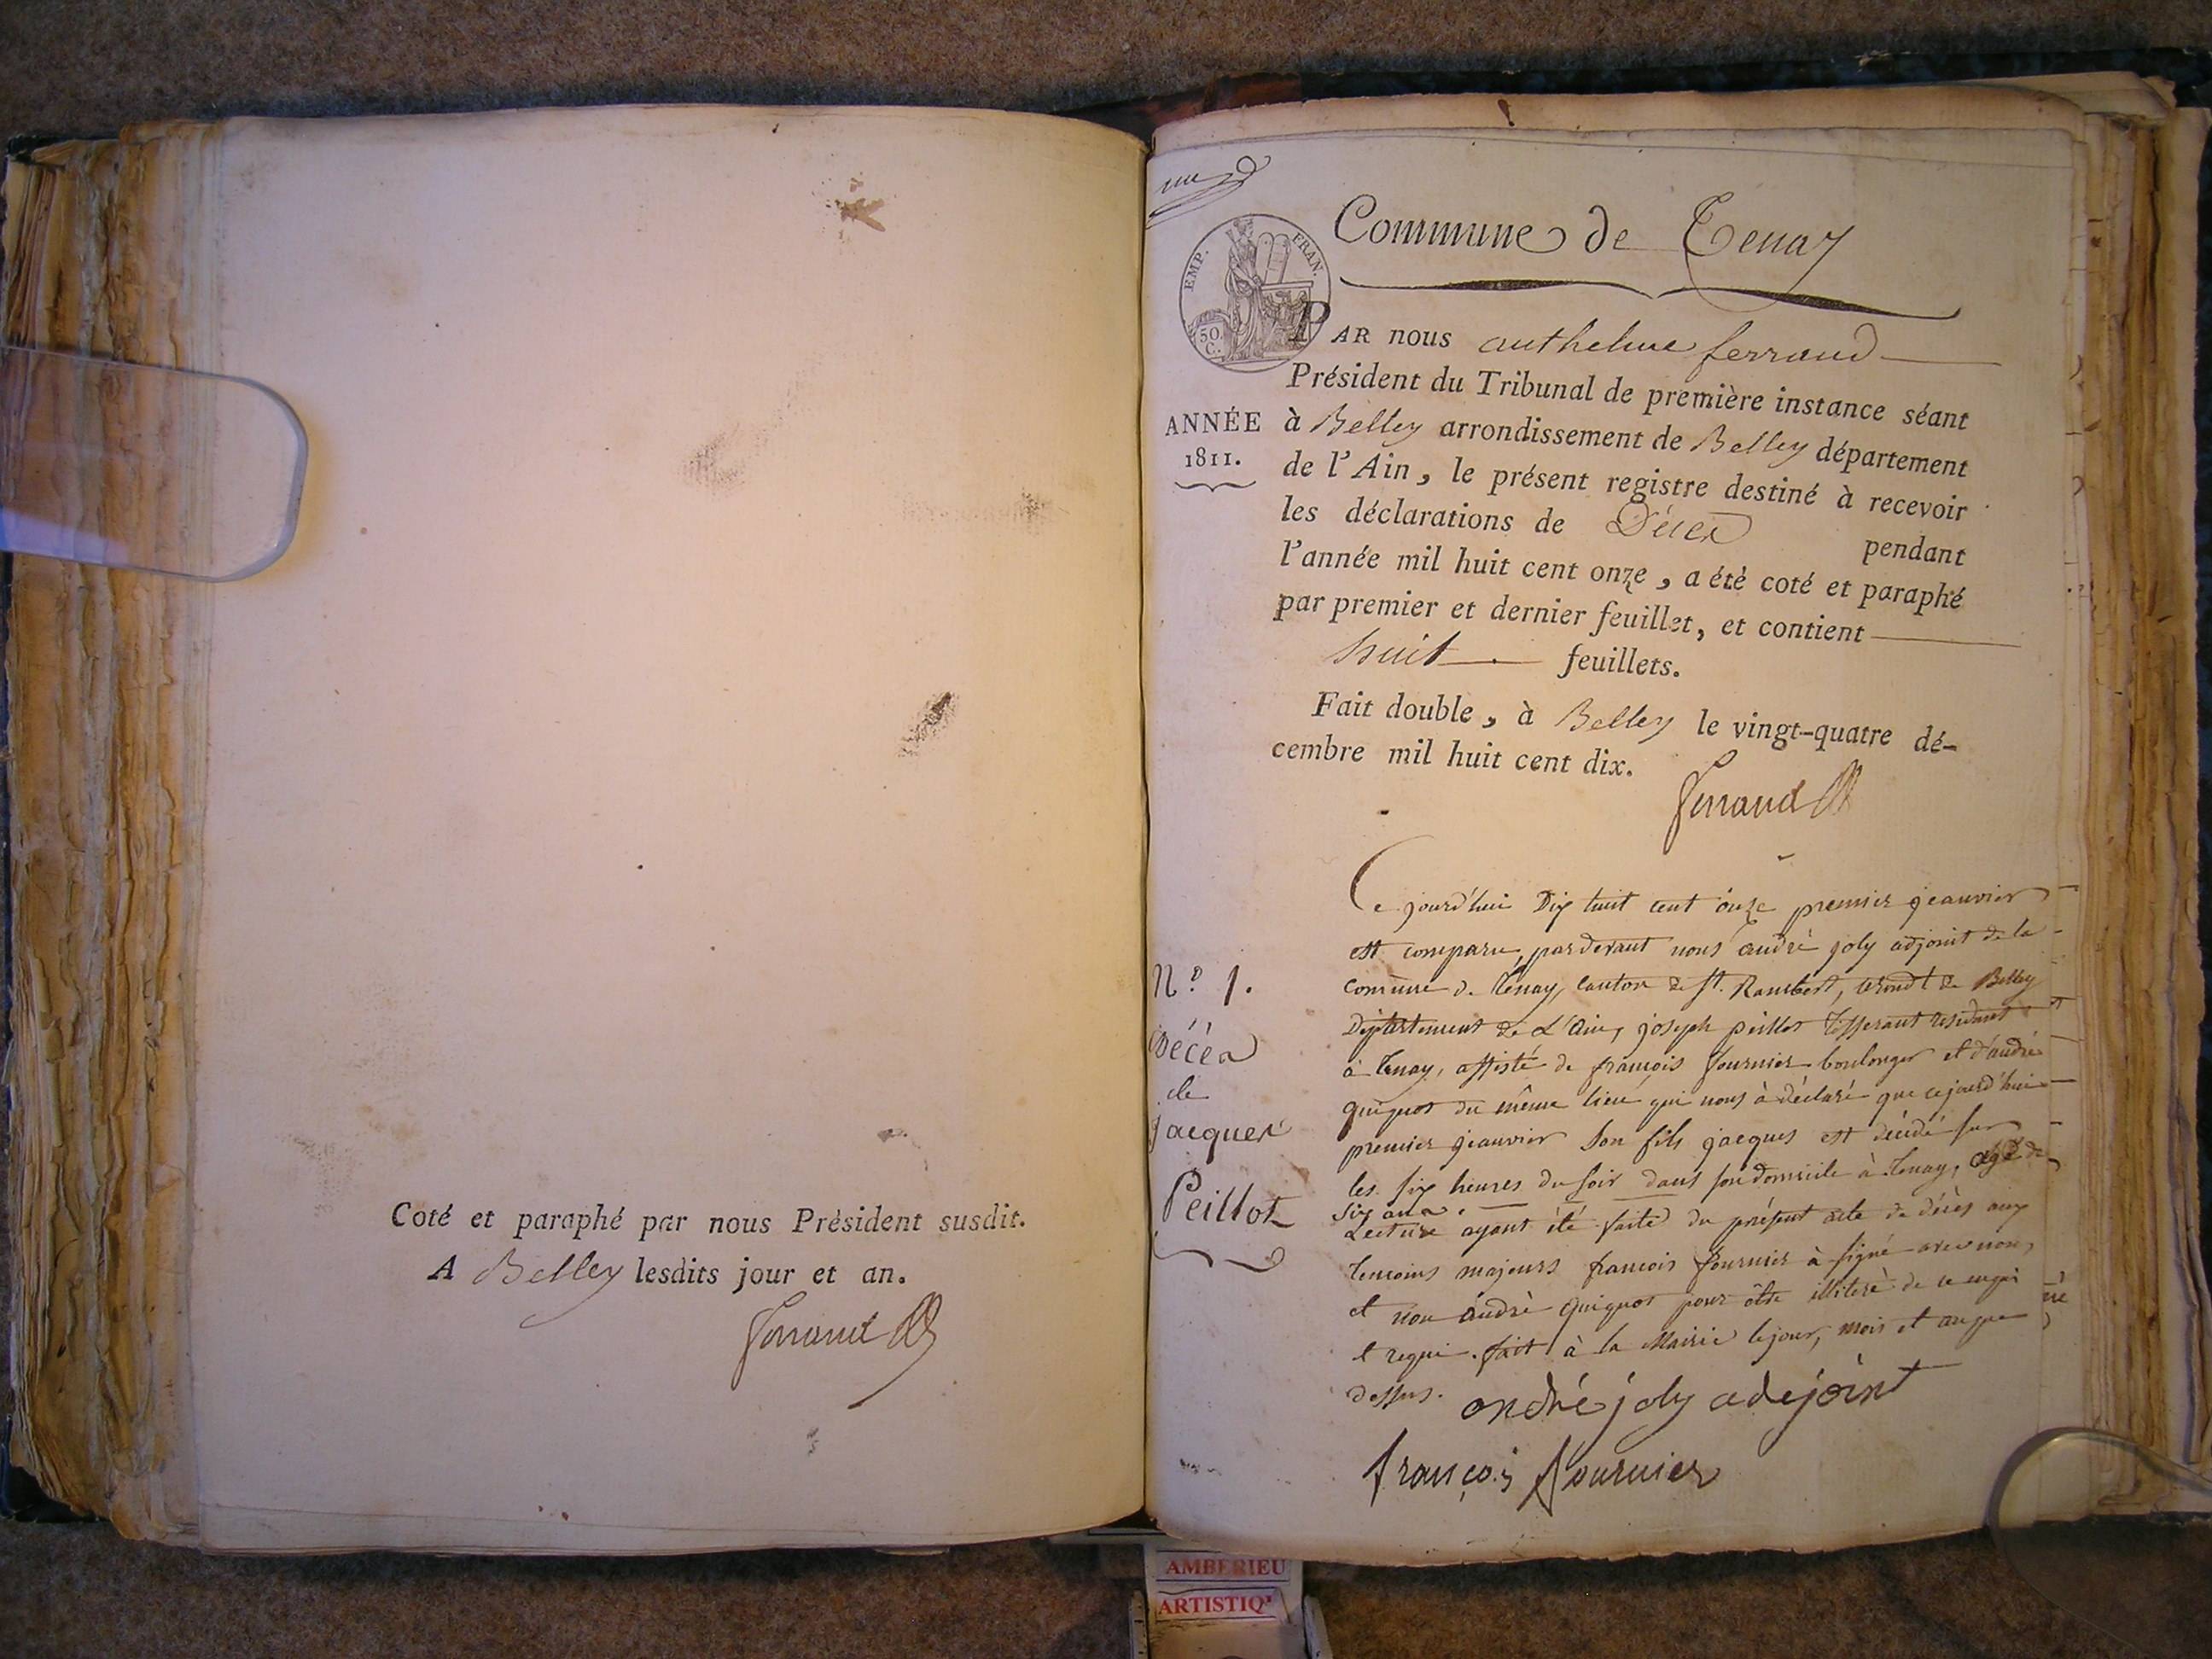 Coté et paraphé par nous Président susdit.
A Belley lesdits jour et an.
Ferrand
un
EMP. FRAN.
50 C.
Commune de Tenay
PAR nous anthelme ferrand
Président du Tribunal de première instance séant
ANNÉE
1811.
à Belley arrondissement de Belley département
de l'Ain, le présent registre destiné à recevoir
les déclarations de Décès pendant
l'année mil huit cent onze, a été coté et paraphé
par premier et dernier feuillet, et contient
huit feuillets.
Fait double, à Belley le vingt-quatre dé-
cembre mil huit cent dix.
Ferrand
N.º 1.
Décès
de
Jacques
Peillot
Ce jourd'hui Dix huit cent onze premier jeanvier
est comparu, pardevant nous andré joly adjoint de la
comune de Tenay, canton de St. Rambert, arondt de Belley
Département de L'Ain, joseph peillot Tisserant residant
à Tenay, assisté de françois fournier boulonger et d'andré
quiquot du même lieu qui nous à déclaré que cejourd'hui
premier jeanvier Son fils jacques est décédé sur
les six heures du soir dans son domicile à Tenay, agé de
six ans.
Lecture ayant été faite du présent acte de décès aux
temoins majeurs francois fournier à signé avec nous,
et non André quiquot pour être illiteré de ce enqui
t requi. fait à la Mairie le jour, mois et an que
dessus.
andré joly adejoint
françois fournier
AMBERIEU
ARTISTIQ'